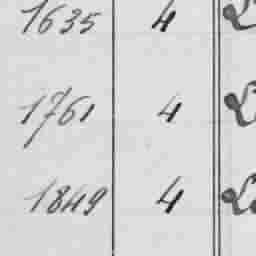 1635 4
1761 4
1849 4